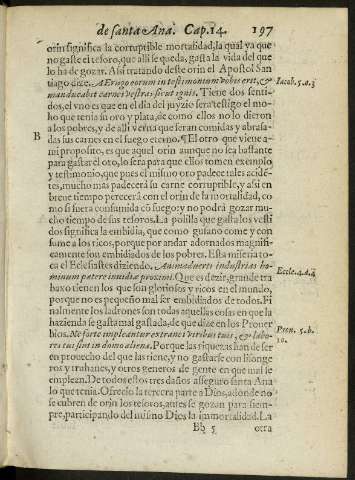 de santa Ana. Cap.14. 197
orin significa la corruptible mortalidad, la qual ya que
no gaste el tesoro, que alli se queda, gasta la vida del que
lo ha de gozar. Assi tratando deste orin el Apostol San
tiago dize. Aerugo eorum in testimonium vobis erit, &
manducabit carnes vestras sicut ignis. Tiene dos senti-
dos, el vno es que en el dia del juyzio sera testigo el mo-
ho que tenia su oro y plata, de como ellos no lo dieron
a los pobres, y de alli verna que seran comidas y abrasa-
das sus carnes en el fuego eterno. ¶ El otro que viene a
mi proposito, es que aquel orin aunque no sea bastante
para gastar el oto, lo sera para que ellos tomen exemplo
y testimonio, que pues el mismo oro padece tales acidē-
tes, mucho mas padecerá su carne corruptible, y assi en
breue tiempo perecerá con el orin de la mortalidad, co-
mo si fuera consumida cō fuego y no podrá gozar mu-
cho tiempo de sus tesoros. La polilla que gasta los vesti
dos significa la embidia, que como gusano come y con
sume a los ricos, porque por andar adornados magnifi-
camente son embidiados de los pobres. Esta miseria to-
ca el Eclesiastes diziendo. Animaduerti industrias ho-
minum patere inuidiae proximi. Que es dezir, grande tra
baxo tienen los que son gloriosos y ricos en el mundo,
porque no es pequeño mal ser embidiados de todos. Fi
nalmente los ladrones son todas aquellas cosas en que la
hazienda se gasta mal gastada, de que dize en los Prouer
bios. Ne forte impleantur extranei viribus tuis, & labo-
res tui sint in domo aliena. Porque las riquezas han de ser
en prouecho del que las tiene, y no gastarse con lisonge
ros y truhanes, y otros generos de gente en que mal se
emplean. De todos estos tres daños asseguro santa Ana
lo que tenia. Ofrecio la tercera parte a Dios, adonde no
se cubren de orin los tesoros, antes se gozan para siem-
pre, participando del mismo Dios la immortalidad. La
Bb 5 otra
Iacob. 5. a. 3
B
Eccle. 4. a. 4
Prou. 5. b.
10.